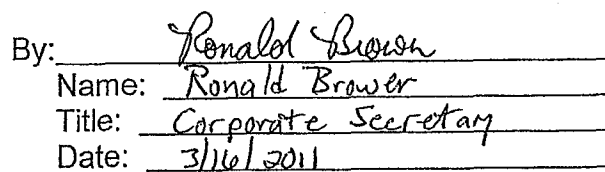 By: Ronald Brower
Name: Ronald Brower
Title: Corporate Secretary
Date: 3/16/2011